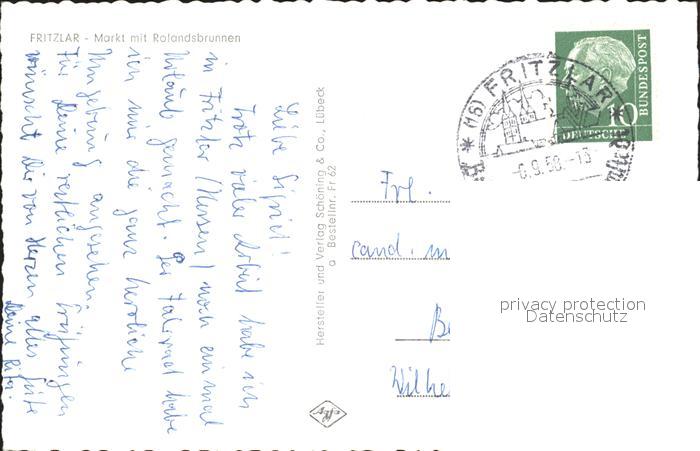 FRITZLAR - Markt mit Rolandsbrunnen
Liebe Sigrid!
Trotz vieler Arbeit habe ich
in Fritzlar (Hessen) noch einmal
Urlaub gemacht. Per Fahrrad habe
ich mir die ganz herrliche
Umgebung angesehen.
Für Deine restlichen Prüfungen
wünscht Dir von Herzen alles Gute
Deine Rita.
Hersteller und Verlag Schöning & Co., Lübeck
Bestellnr. Fr 62
(16) FRITZLAR
-6.9.58.-13
10
DEUTSCHE
BUNDESPOST
Frl.
cand. m
B
Wilhe
privacy protection
Datenschutz